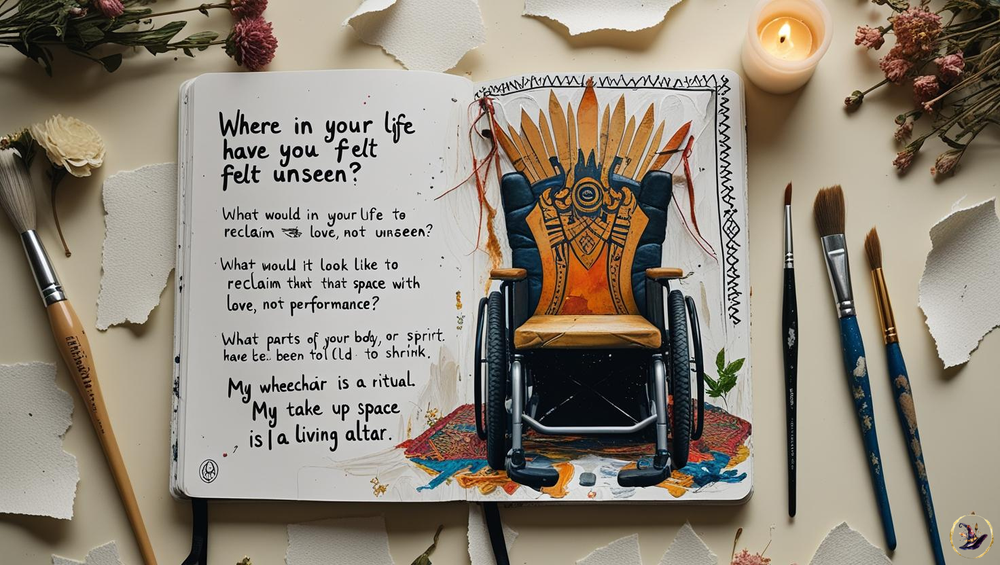 Where in your life
have you felt
felt unseen?
What would in your life to
reclaim love, not unseen?
What would it look like to
reclaim that that space with
love, not performance?
What parts of your body, or spirit.
have been to shrink.
My wheechair is a ritual.
My take up space
is a living altar.